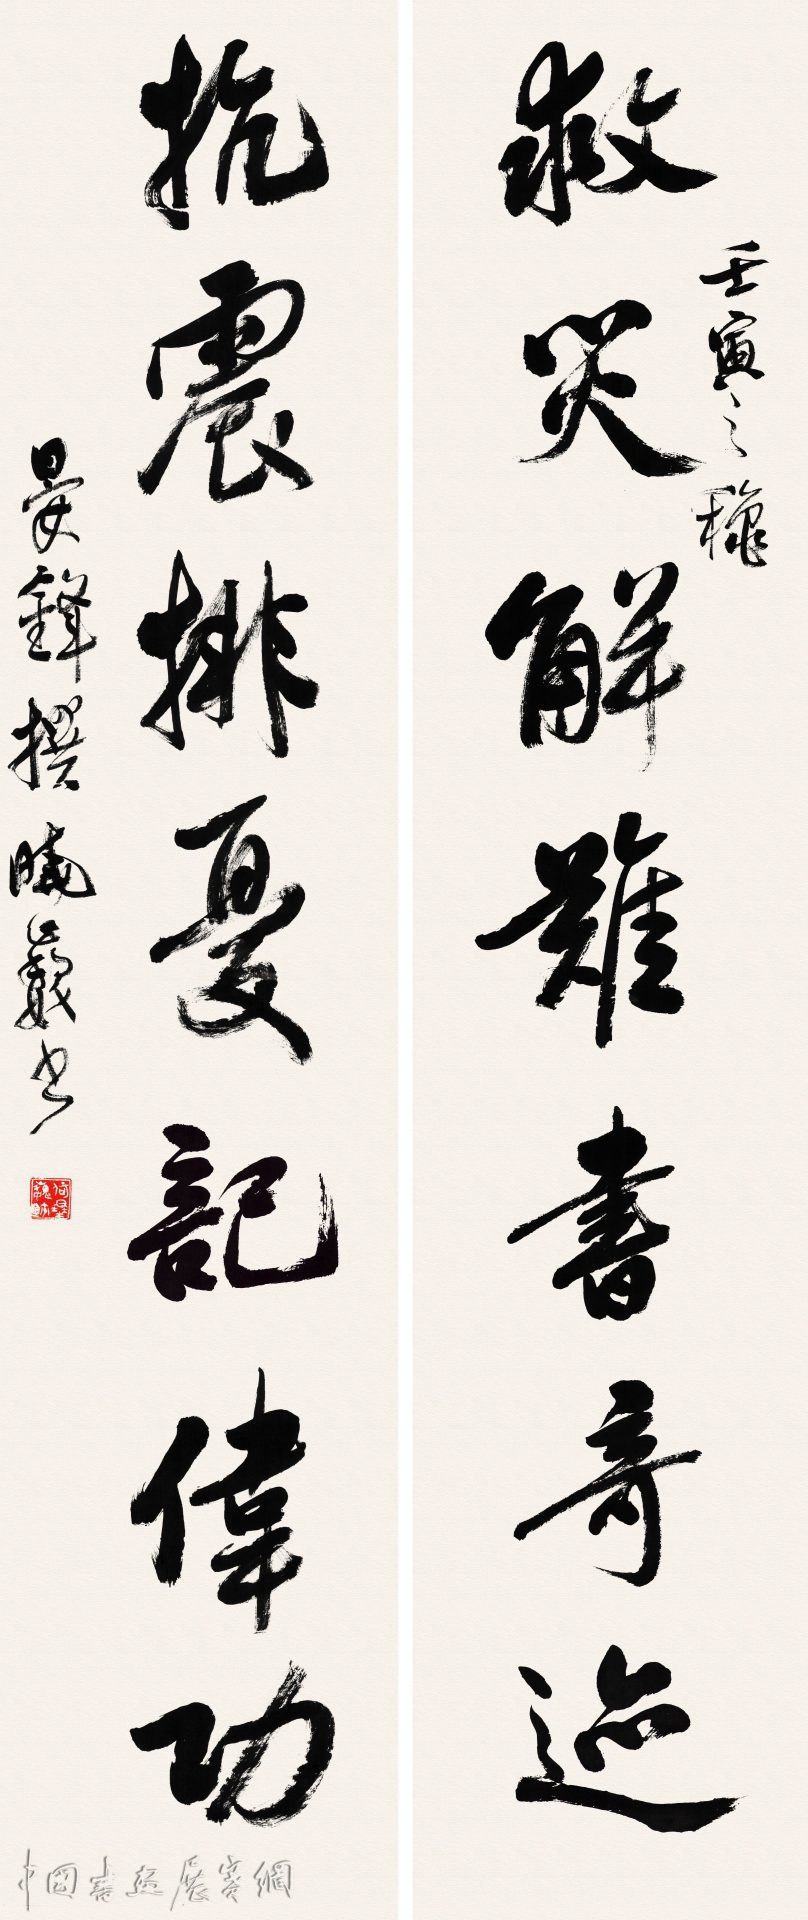 救災解難書奇迹
壬寅之龝
抗震排憂記偉功
晏鋒撰曉巍书
中國書畫展賽網